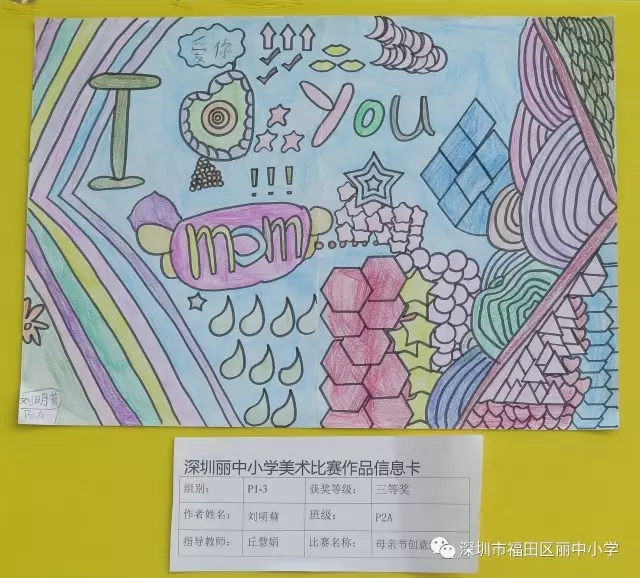 爱你
I YOU
!!!
mom
刘明蕚
P2A
深圳丽中小学美术比赛作品信息卡
组别: P1-3 获奖等级: 三等奖
作者姓名: 刘明蕚 班级: P2A
指导教师: 丘慧娟 比赛名称: 母亲节创意
深圳市福田区丽中小学